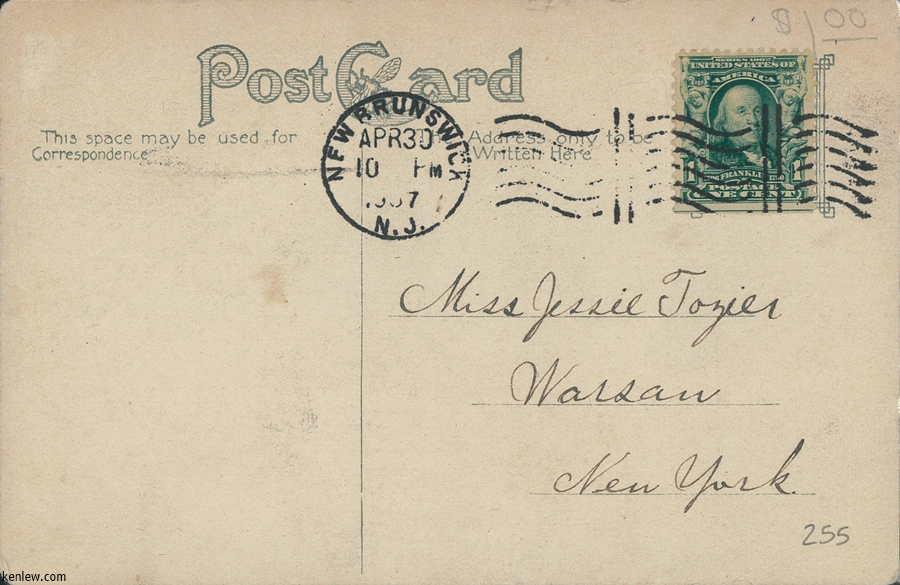 $1.00
Post Card
This space may be used for
Correspondence
Address only to be
Written Here
NEW BRUNSWICK
APR 30
10 PM
N.J.
SERIES 1902
UNITED STATES OF
AMERICA
FRANKLIN
POSTAGE
ONE CENT
Miss Jessie Tozier
Warsaw
New York.
255
kenlew.com